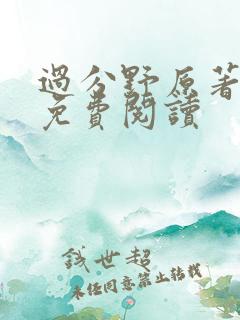 過分野原著
免費閱讀
錢世超
未經同意禁止轉載